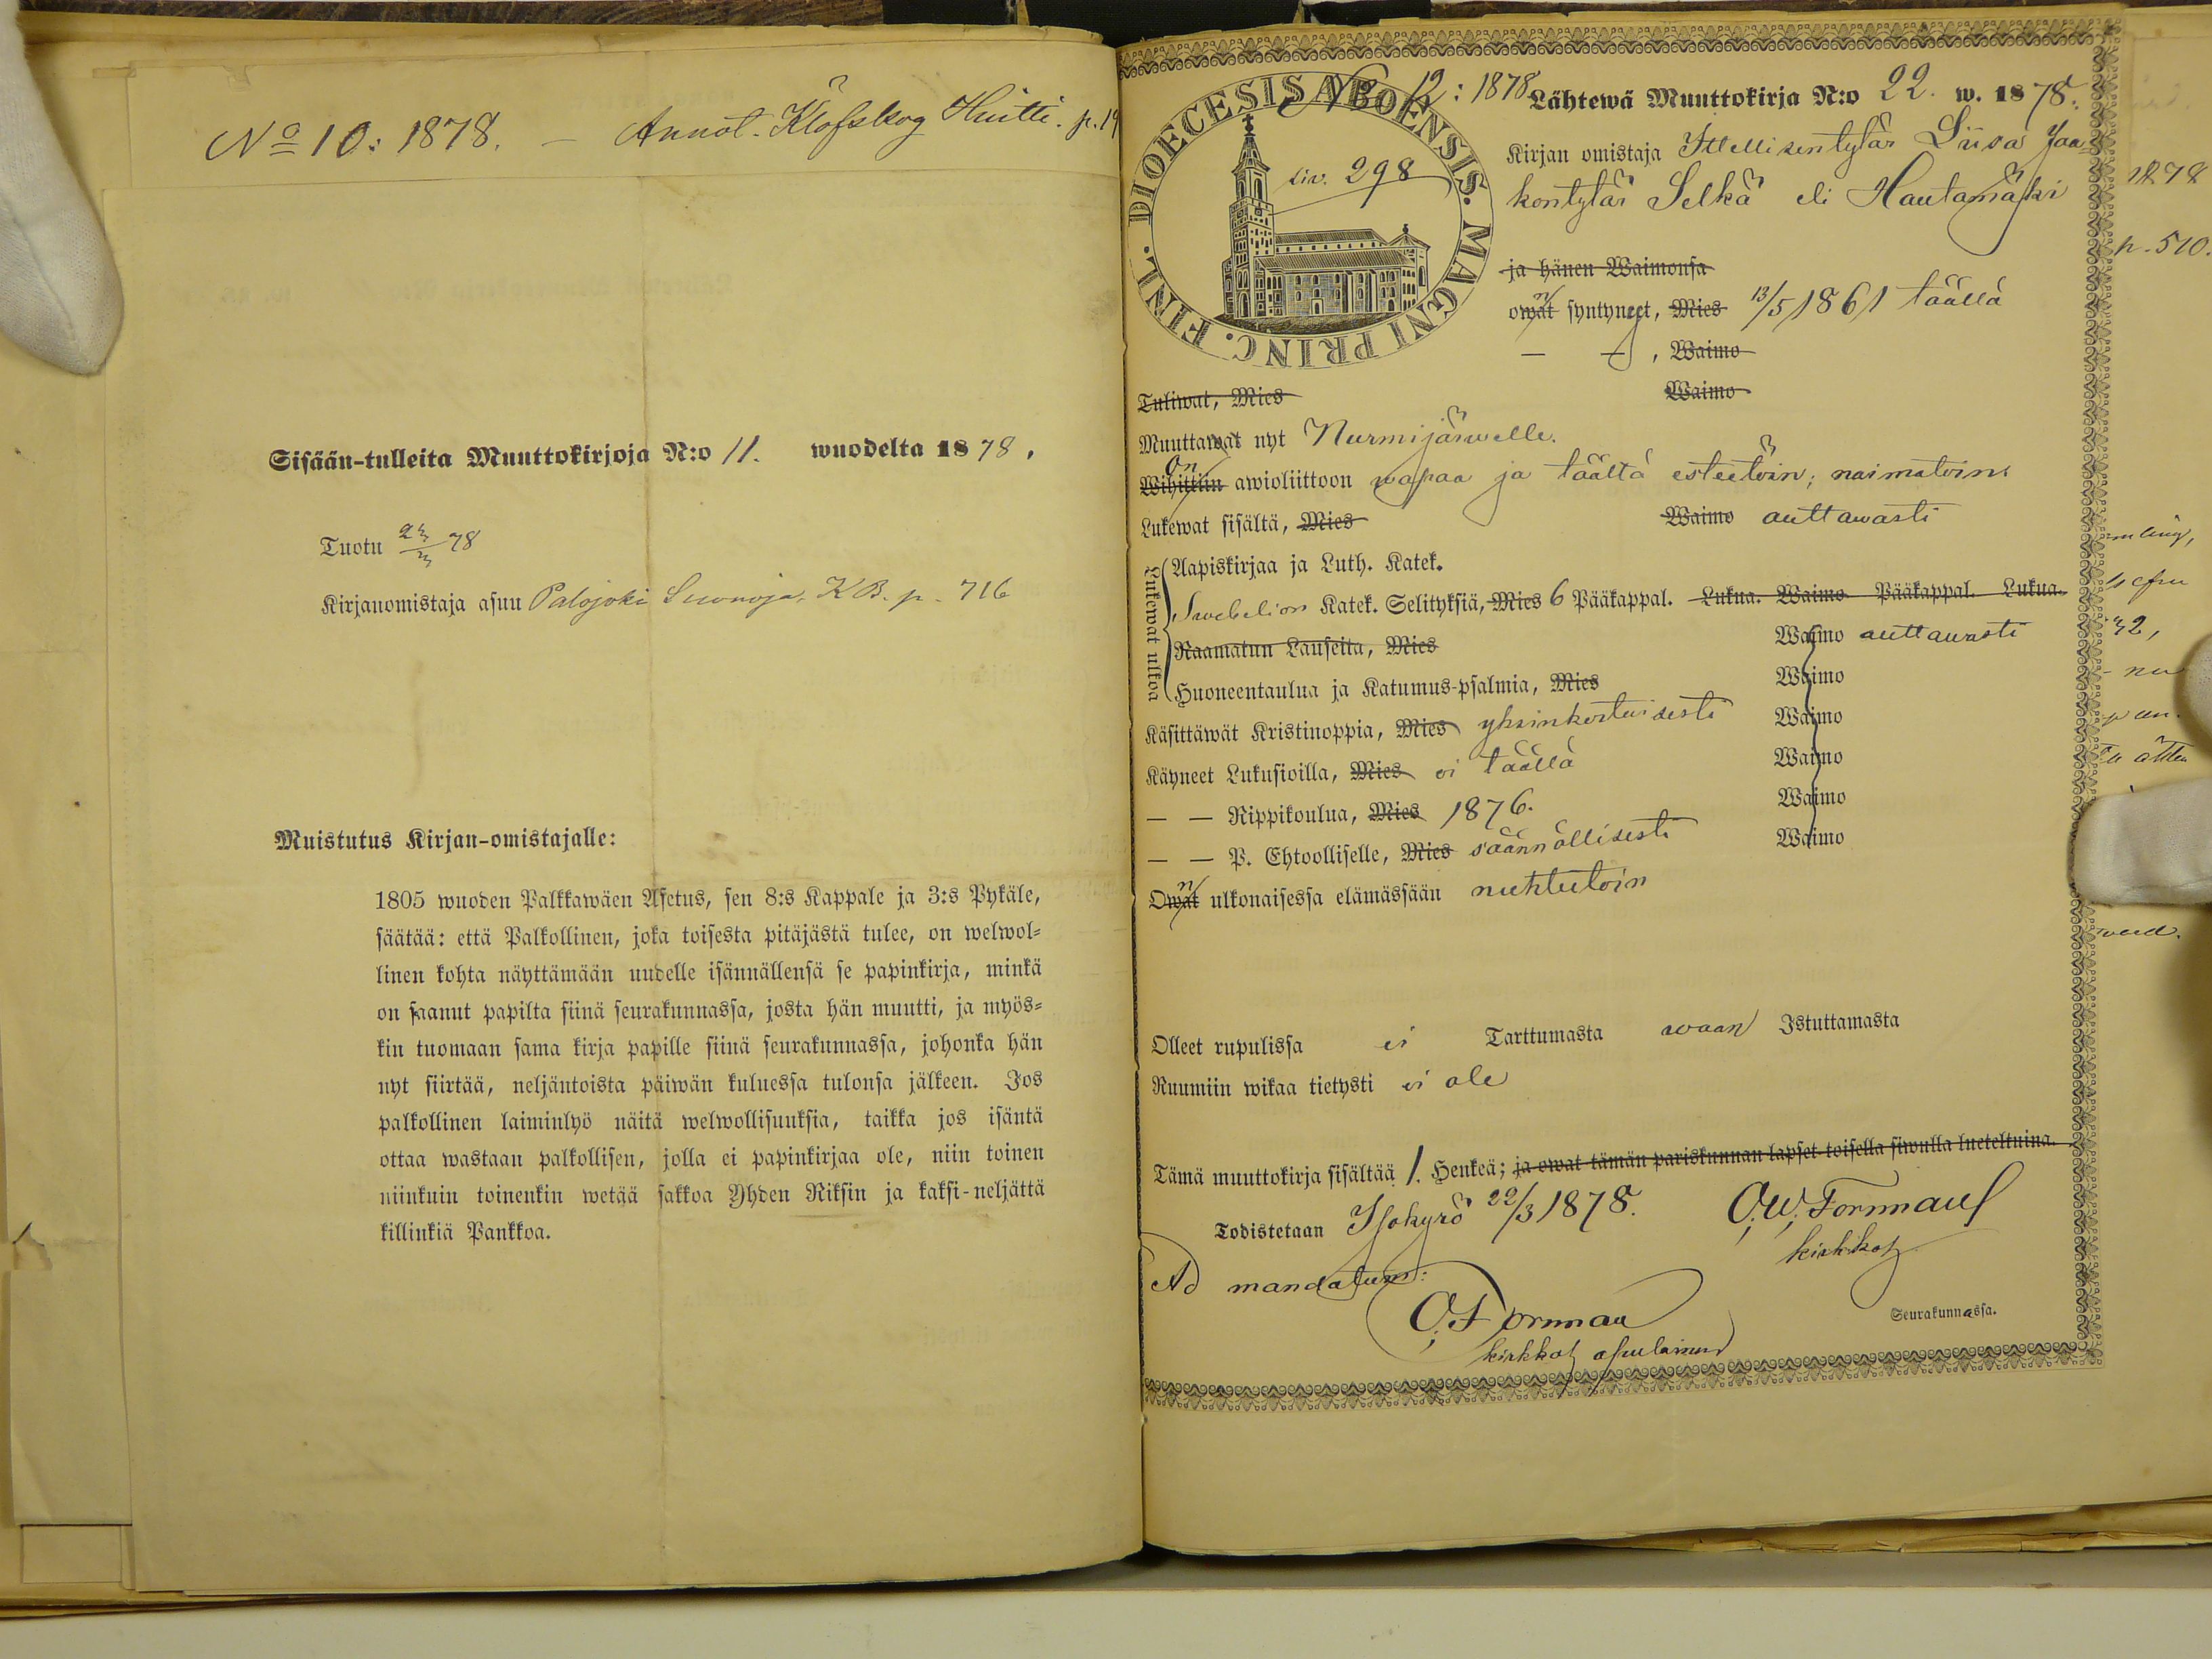 No 10: 1878. — Annot. Klöfskog Huitti. p. 19
Sisään-tulleita Muuttokirjoja N:o 11. wuodelta 1878.
Tuotu 23/3 78
Kirjanomistaja asuu Palojoki Suonoja, KB. p. 716
Muistutus Kirjan-omistajalle:
1805 wuoden Palkkawäen Asetus, sen 8:s Kappale ja 3:s Pykäle,
säätää: että Palkollinen, joka toisesta pitäjästä tulee, on welwol-
linen kohta näyttämään uudelle isännällensä se papinkirja, minkä
on saanut papilta siinä seurakunnassa, josta hän muutti, ja myös-
kin tuomaan sama kirja papille siinä seurakunnassa, johonka hän
nyt siirtää, neljäntoista päiwän kuluessa tulonsa jälkeen. Jos
palkollinen laiminlyö näitä welwollisuuksia, taikka jos isäntä
ottaa wastaan palkollisen, jolla ei papinkirjaa ole, niin toinen
niinkuin toinenkin wetää sakkoa Yhden Riksin ja kaksi-neljättä
killinkiä Pankkoa.
DIOECESIS ABOENSIS. MAGNI PRINC. FINL.
No 12: 1878
siv. 298
Lähtewä Muuttokirja N:o 22. w. 1878.
Kirjan omistaja Itellisentytär Liisa Jaa-
kontytär Selkä eli Hautamäki
ja hänen Waimonsa
owat n syntyneet, Mies 13/5 1861 täällä
— — , Waimo
Tuliwat, Mies Waimo
Muuttawat nyt Nurmijärwelle.
On
Wihittiin awioliittoon wapaa ja täältä esteetöin; naimatoin
Lukewat sisältä, Mies Waimo auttawasti
Lukewat ulkoa
Aapiskirjaa ja Luth. Katek.
Swebelion Katek. Selityksiä, Mies 6 Pääkappal. Lukua. Waimo Pääkappal. Lukua.
Raamatun Lauseita, Mies Waimo auttawasti
Huoneentaulua ja Katumus-psalmia, Mies Waimo
Käsittäwät Kristinoppia, Mies yksinkertaisesti Waimo
Käyneet Lukusioilla, Mies ei täällä Waimo
— — Rippikoulua, Mies 1876. Waimo
— — P. Ehtoolliselle, Mies säännöllisesti Waimo
Owat n ulkonaisessa elämässään nuhteetoin
Olleet rupulissa ei Tarttumasta waan Istuttamasta
Ruumiin wikaa tietysti ei ole
Tämä muuttokirja sisältää 1. Henkeä; ja owat tämän pariskunnan lapset toisella siwulla lueteltuina.
Todistetaan Isokyrö 22/3 1878. O. W. Forsman
kirkkoh
Ad mandatum:
O. Forsman
kirkkoh apulainen
Seurakunnassa.
1878
p. 510.